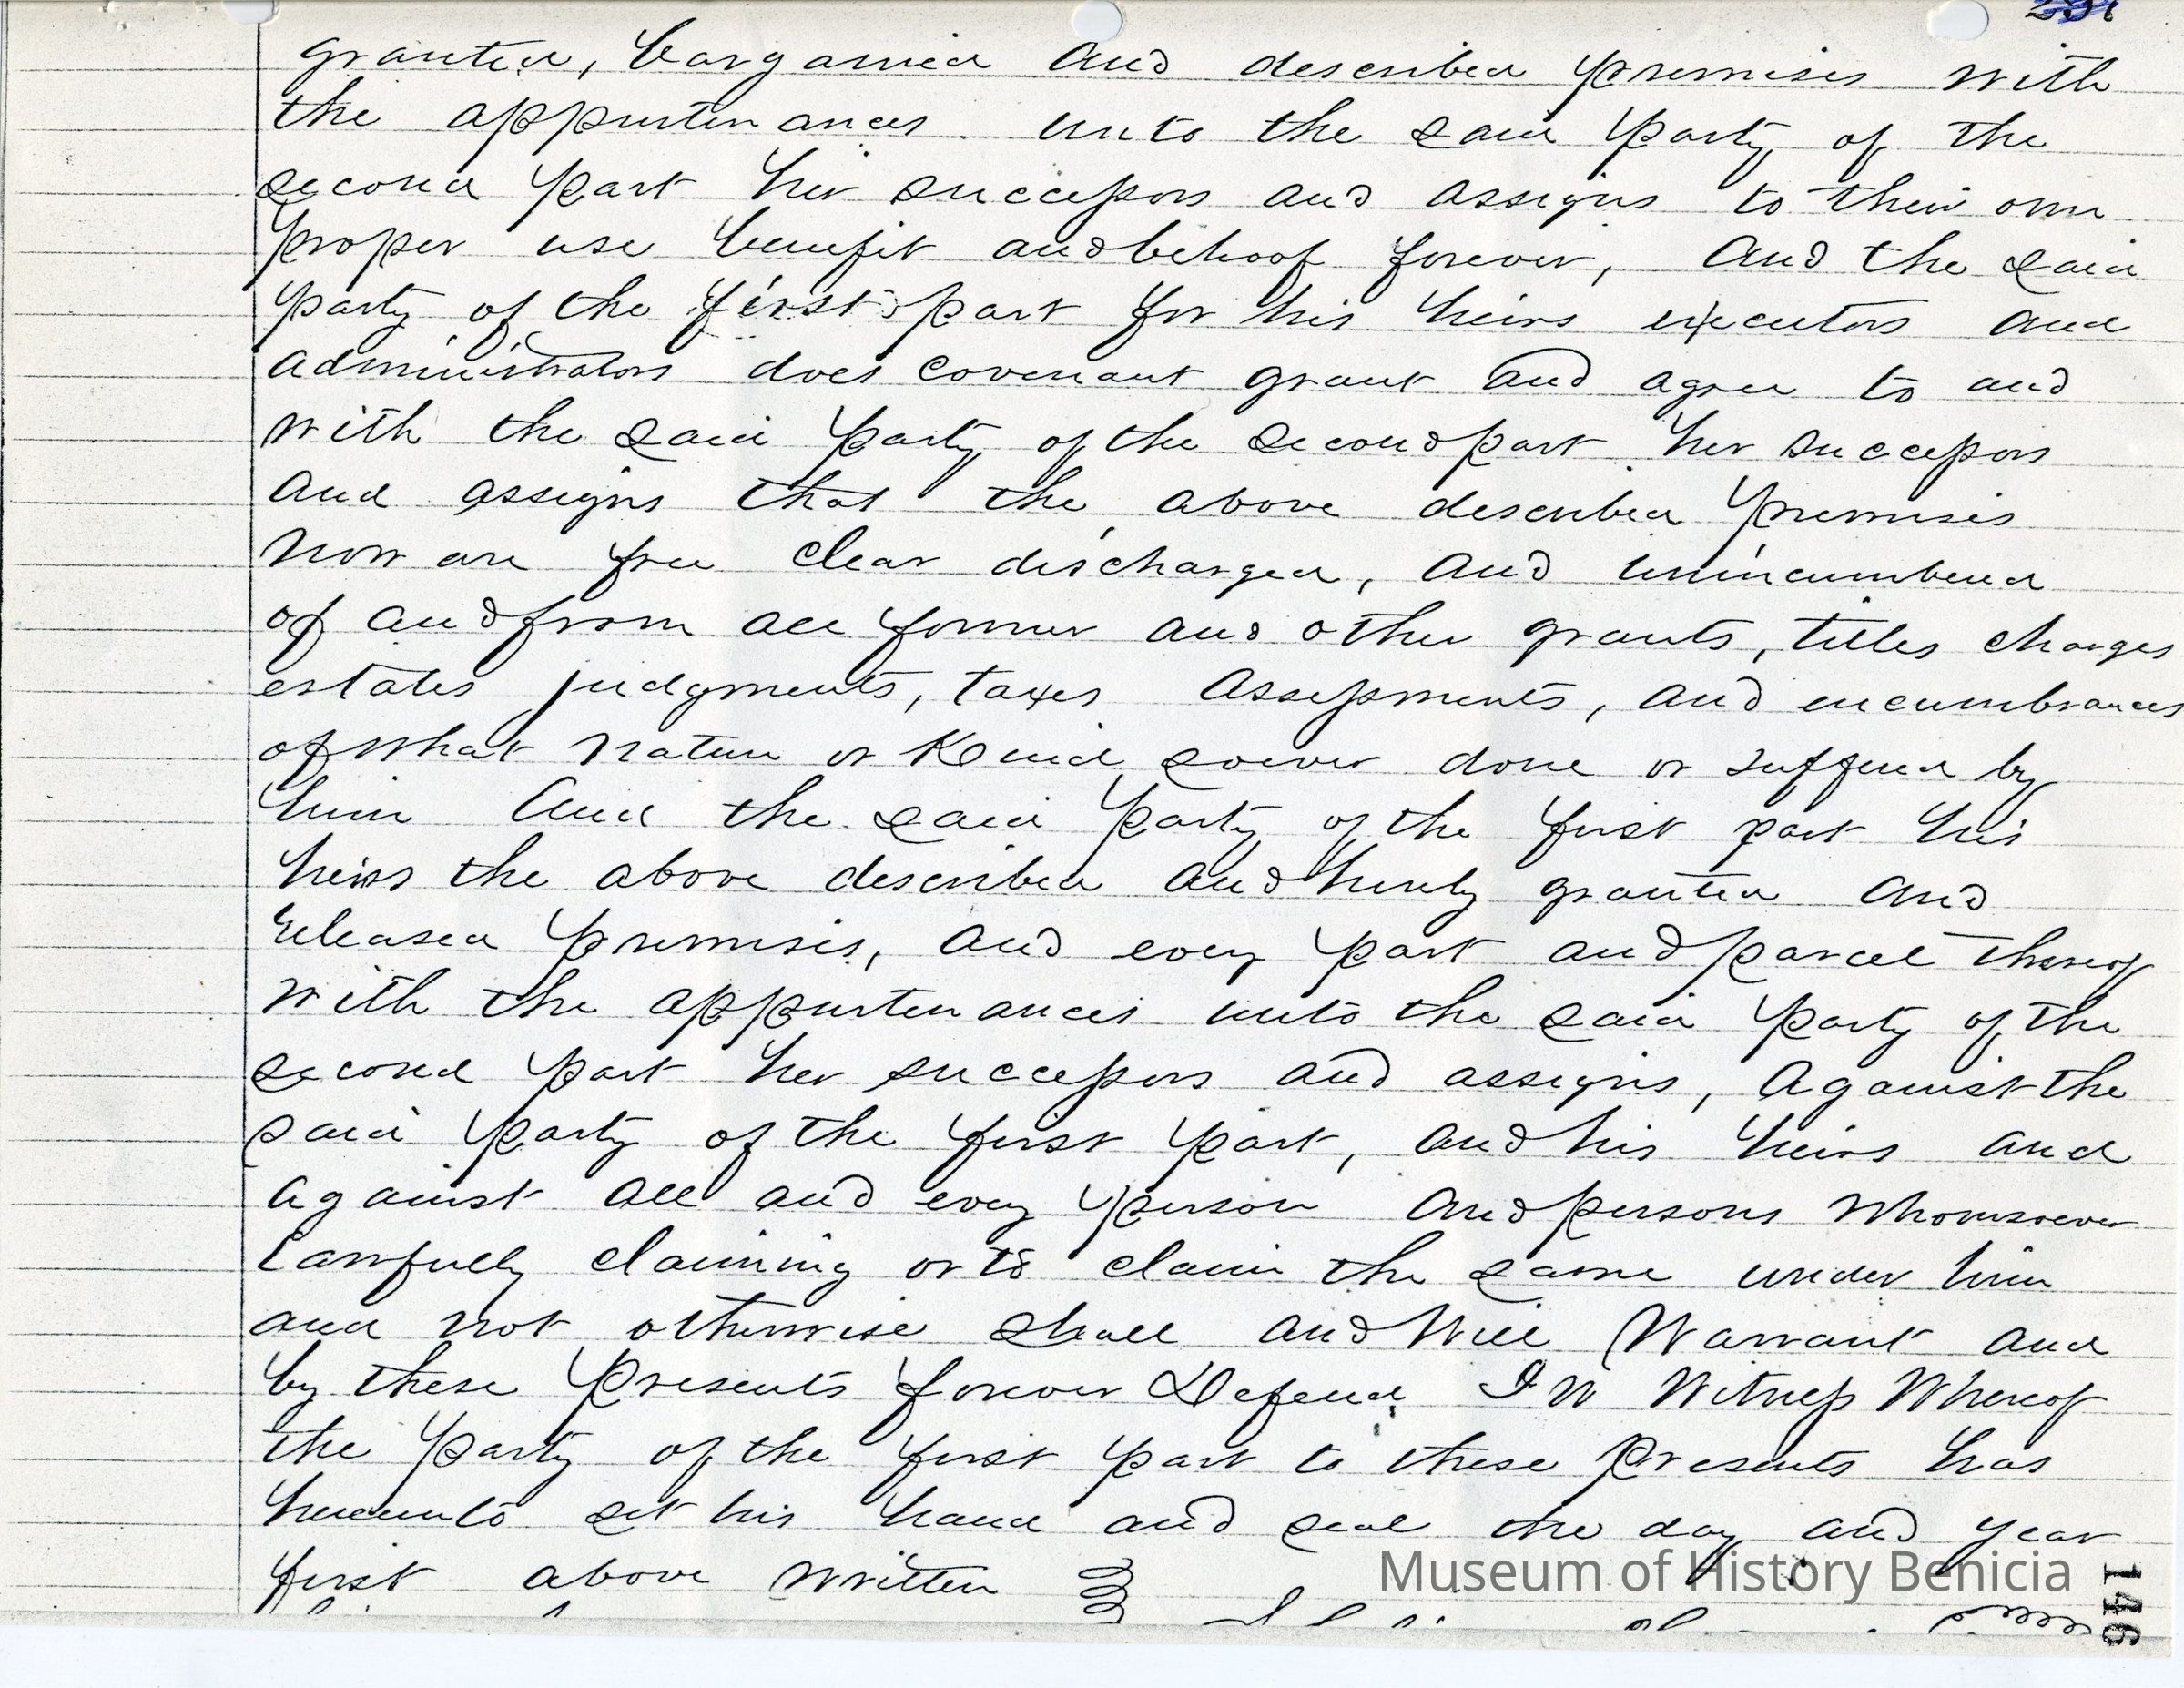 granted, bargained and described premises with
the appurtenances unto the said Party of the
second part her successors and assigns to their own
proper use benefit and behoof forever, And the said
party of the first part for his heirs executors and
administrators does covenant grant and agree to and
with the said party of the second part her successors
and assigns that the above described premises
now are free clear discharged, and unincumbered
of and from all former and other grants, titles charges
estates judgments, taxes Assessments, and encumbrances
of what nature or Kind soever done or suffered by
him And the said Party of the first part his
heirs the above described and hereby granted and
released premises, and every part and parcel thereof
with the appurtenances unto the said Party of the
second part her successors and assigns, Against the
said Party of the first part, and his heirs and
Against all and every person and persons whomsoever
Lawfully claiming or to claim the same under him
and not otherwise shall and Will Warrant and
by these Presents forever Defend. In Witness Whereof
the Party of the first part to these Presents has
hereunto set his hand and seal the day and year
first above written
Museum of History Benicia
146